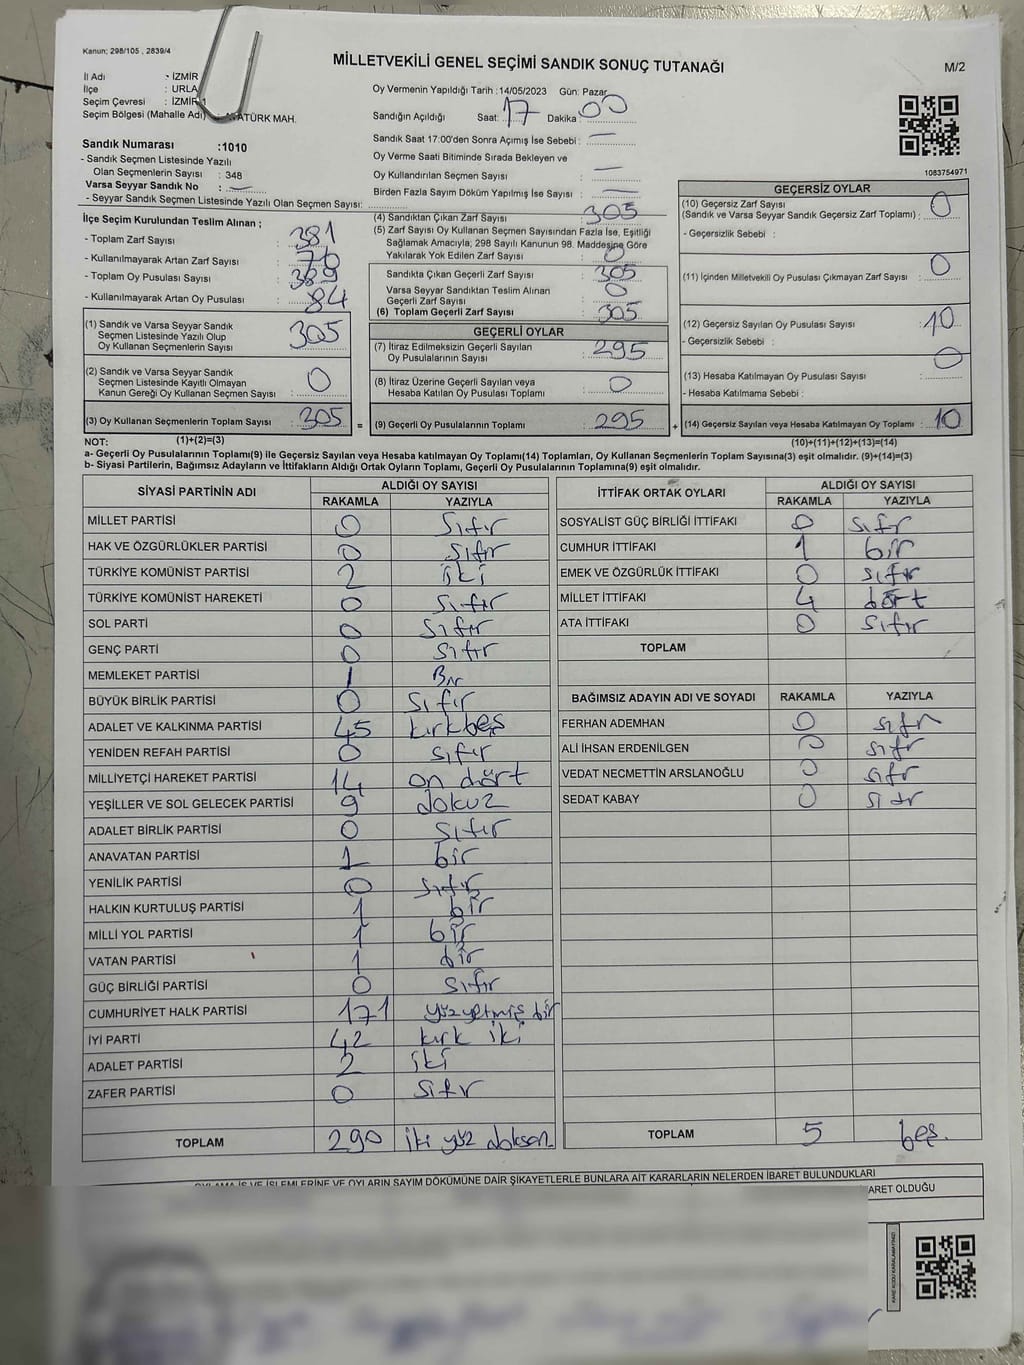 Kanun; 298/105 , 2839/4
MİLLETVEKİLİ GENEL SEÇİMİ SANDIK SONUÇ TUTANAĞI
M/2
İl Adı : İZMİR
İlçe : URLA
Seçim Çevresi : İZMİR 1
Seçim Bölgesi (Mahalle Adı) ATATÜRK MAH.
Sandık Numarası :1010
- Sandık Seçmen Listesinde Yazılı
Olan Seçmenlerin Sayısı : 348
Varsa Seyyar Sandık No : —
- Seyyar Sandık Seçmen Listesinde Yazılı Olan Seçmen Sayısı:
Oy Vermenin Yapıldığı Tarih :14/05/2023 Gün: Pazar
Sandığın Açıldığı Saat: 17 Dakika 00
Sandık Saat 17:00'den Sonra Açımış İse Sebebi : —
Oy Verme Saati Bitiminde Sırada Bekleyen ve
Oy Kullandırılan Seçmen Sayısı : —
Birden Fazla Sayım Döküm Yapılmış İse Sayısı : —
1083754971
İlçe Seçim Kurulundan Teslim Alınan ;
- Toplam Zarf Sayısı : 381
- Kullanılmayarak Artan Zarf Sayısı : 76
- Toplam Oy Pusulası Sayısı : 389
- Kullanılmayarak Artan Oy Pusulası : 84
(1) Sandık ve Varsa Seyyar Sandık
Seçmen Listesinde Yazılı Olup
Oy Kullanan Seçmenlerin Sayısı : 305
(2) Sandık ve Varsa Seyyar Sandık
Seçmen Listesinde Kayıtlı Olmayan
Kanun Gereği Oy Kullanan Seçmen Sayısı : 0
(3) Oy Kullanan Seçmenlerin Toplam Sayısı : 305 =
(4) Sandıktan Çıkan Zarf Sayısı : 305
(5) Zarf Sayısı Oy Kullanan Seçmen Sayısından Fazla İse, Eşitliği
Sağlamak Amacıyla; 298 Sayılı Kanunun 98. Maddesine Göre
Yakılarak Yok Edilen Zarf Sayısı : 0
Sandıkta Çıkan Geçerli Zarf Sayısı : 305
Varsa Seyyar Sandıktan Teslim Alınan
Geçerli Zarf Sayısı : 0
(6) Toplam Geçerli Zarf Sayısı : 305
GEÇERLİ OYLAR
(7) İtiraz Edilmeksizin Geçerli Sayılan
Oy Pusulalarının Sayısı : 295
(8) İtiraz Üzerine Geçerli Sayılan veya
Hesaba Katılan Oy Pusulası Toplamı : 0
(9) Geçerli Oy Pusulalarının Toplamı : 295 +
GEÇERSİZ OYLAR
(10) Geçersiz Zarf Sayısı
(Sandık ve Varsa Seyyar Sandık Geçersiz Zarf Toplamı) : 0
- Geçersizlik Sebebi :
(11) İçinden Milletvekili Oy Pusulası Çıkmayan Zarf Sayısı : 0
(12) Geçersiz Sayılan Oy Pusulası Sayısı : 10
- Geçersizlik Sebebi :
(13) Hesaba Katılmayan Oy Pusulası Sayısı : 0
- Hesaba Katılmama Sebebi :
(14) Geçersiz Sayılan veya Hesaba Katılmayan Oy Toplamı : 10
NOT: (1)+(2)=(3) (10)+(11)+(12)+(13)=(14)
a- Geçerli Oy Pusulalarının Toplamı(9) ile Geçersiz Sayılan veya Hesaba katılmayan Oy Toplamı(14) Toplamları, Oy Kullanan Seçmenlerin Toplam Sayısına(3) eşit olmalıdır. (9)+(14)=(3)
b- Siyasi Partilerin, Bağımsız Adayların ve İttifakların Aldığı Ortak Oyların Toplamı, Geçerli Oy Pusulalarının Toplamına(9) eşit olmalıdır.
SİYASİ PARTİNİN ADI ALDIĞI OY SAYISI
RAKAMLA YAZIYLA
MİLLET PARTİSİ 0 sıfır
HAK VE ÖZGÜRLÜKLER PARTİSİ 0 sıfır
TÜRKİYE KOMÜNİST PARTİSİ 2 iki
TÜRKİYE KOMÜNİST HAREKETİ 0 sıfır
SOL PARTİ 0 sıfır
GENÇ PARTİ 0 sıfır
MEMLEKET PARTİSİ 1 Bir
BÜYÜK BİRLİK PARTİSİ 0 sıfır
ADALET VE KALKINMA PARTİSİ 45 kırkbeş
YENİDEN REFAH PARTİSİ 0 sıfır
MİLLİYETÇİ HAREKET PARTİSİ 14 on dört
YEŞİLLER VE SOL GELECEK PARTİSİ 9 dokuz
ADALET BİRLİK PARTİSİ 0 sıfır
ANAVATAN PARTİSİ 1 bir
YENİLİK PARTİSİ 0 sıfır
HALKIN KURTULUŞ PARTİSİ 1 bir
MİLLİ YOL PARTİSİ 1 bir
VATAN PARTİSİ 1 bir
GÜÇ BİRLİĞİ PARTİSİ 0 sıfır
CUMHURİYET HALK PARTİSİ 171 yüzyetmiş bir
İYİ PARTİ 42 kırk iki
ADALET PARTİSİ 2 iki
ZAFER PARTİSİ 0 sıfır
TOPLAM 290 iki yüz doksan
İTTİFAK ORTAK OYLARI ALDIĞI OY SAYISI
RAKAMLA YAZIYLA
SOSYALİST GÜÇ BİRLİĞİ İTTİFAKI 0 sıfır
CUMHUR İTTİFAKI 1 bir
EMEK VE ÖZGÜRLÜK İTTİFAKI 0 sıfır
MİLLET İTTİFAKI 4 dört
ATA İTTİFAKI 0 sıfır
TOPLAM
BAĞIMSIZ ADAYIN ADI VE SOYADI RAKAMLA YAZIYLA
FERHAN ADEMHAN 0 sıfır
ALİ İHSAN ERDENİLGEN 0 sıfır
VEDAT NECMETTİN ARSLANOĞLU 0 sıfır
SEDAT KABAY 0 sıfır
TOPLAM 5 beş
OYLAMA İŞ VE İŞLEMLERİNE VE OYLARIN SAYIM DÖKÜMÜNE DAİR ŞİKAYETLERLE BUNLARA AİT KARARLARIN NELERDEN İBARET BULUNDUKLARI
ARET OLDUĞU
KARE KODU KARALAMAYINIZ!